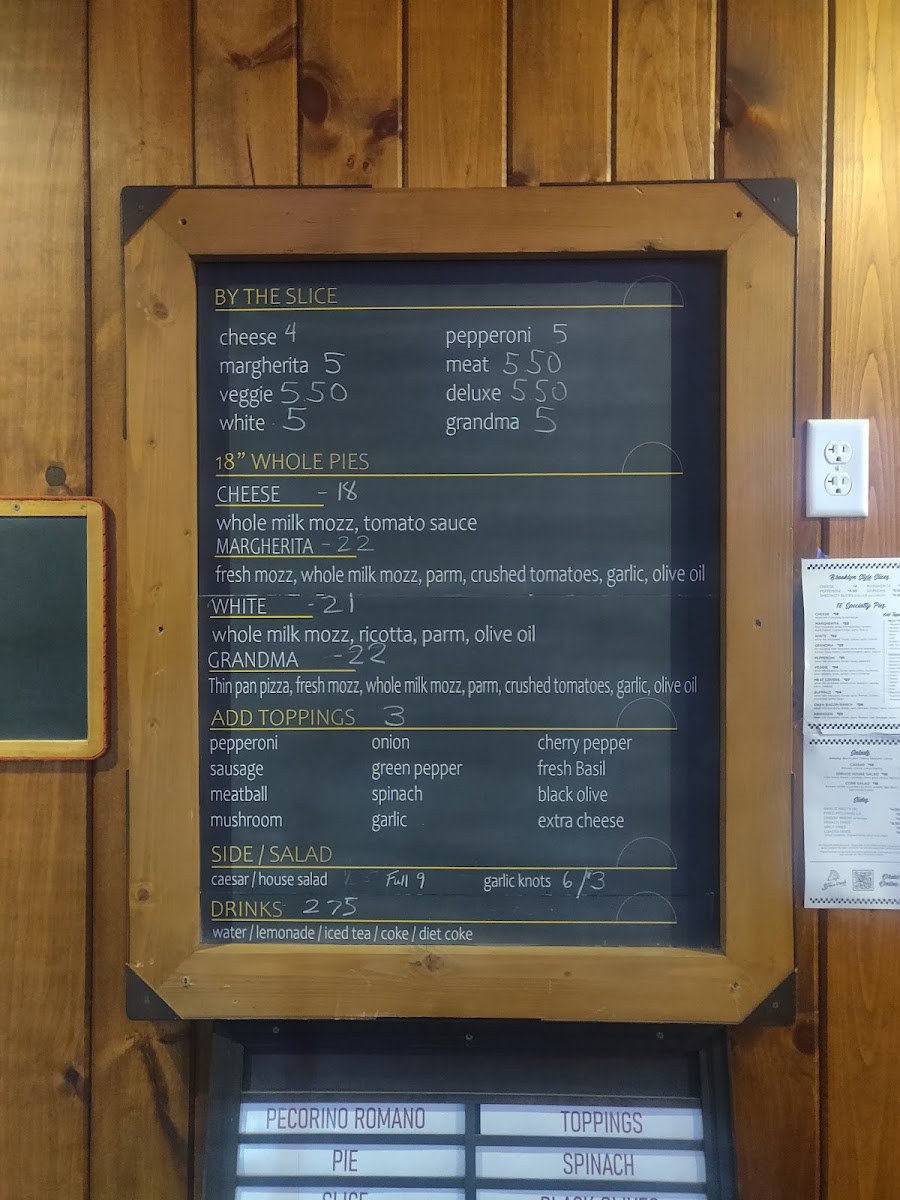 BY THE SLICE
cheese 4 pepperoni 5
margherita 5 meat 5.50
veggie 5.50 deluxe 5.50
white 5 grandma 5
18” WHOLE PIES
CHEESE - 18
whole milk mozz, tomato sauce
MARGHERITA - 22
fresh mozz, whole milk mozz, parm, crushed tomatoes, garlic, olive oil
WHITE - 21
whole milk mozz, ricotta, parm, olive oil
GRANDMA - 22
Thin pan pizza, fresh mozz, whole milk mozz, parm, crushed tomatoes, garlic, olive oil
ADD TOPPINGS 3
pepperoni onion cherry pepper
sausage green pepper fresh Basil
meatball spinach black olive
mushroom garlic extra cheese
SIDE / SALAD
caesar / house salad Full 9 garlic knots 6/3
DRINKS 2 75
water / lemonade / iced tea / coke / diet coke
Brooklyn Style Slices
18" Specialty Pies
Salads
Sides
PECORINO ROMANO TOPPINGS
PIE SPINACH
SLICE BLACK OLIVES